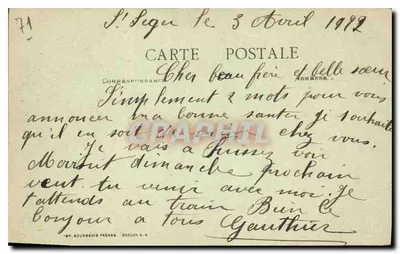 71
St Leger le 3 Avril 1912
CARTE POSTALE
CORRESPONDANCE ADRESSE
Cher beau frère et belle sœur
Simplement 2 mots pour vous
annoncer ma bonne santer je souhaite
qu'il en soit de chez vous.
Je vais a voir
dimanche prochain
veut tu venir avec moi. Je
t'attends au train Bien le
bonjour a tous Gauthier
IMP. BOURGEOIS FRÈRES, CHALON-S-S